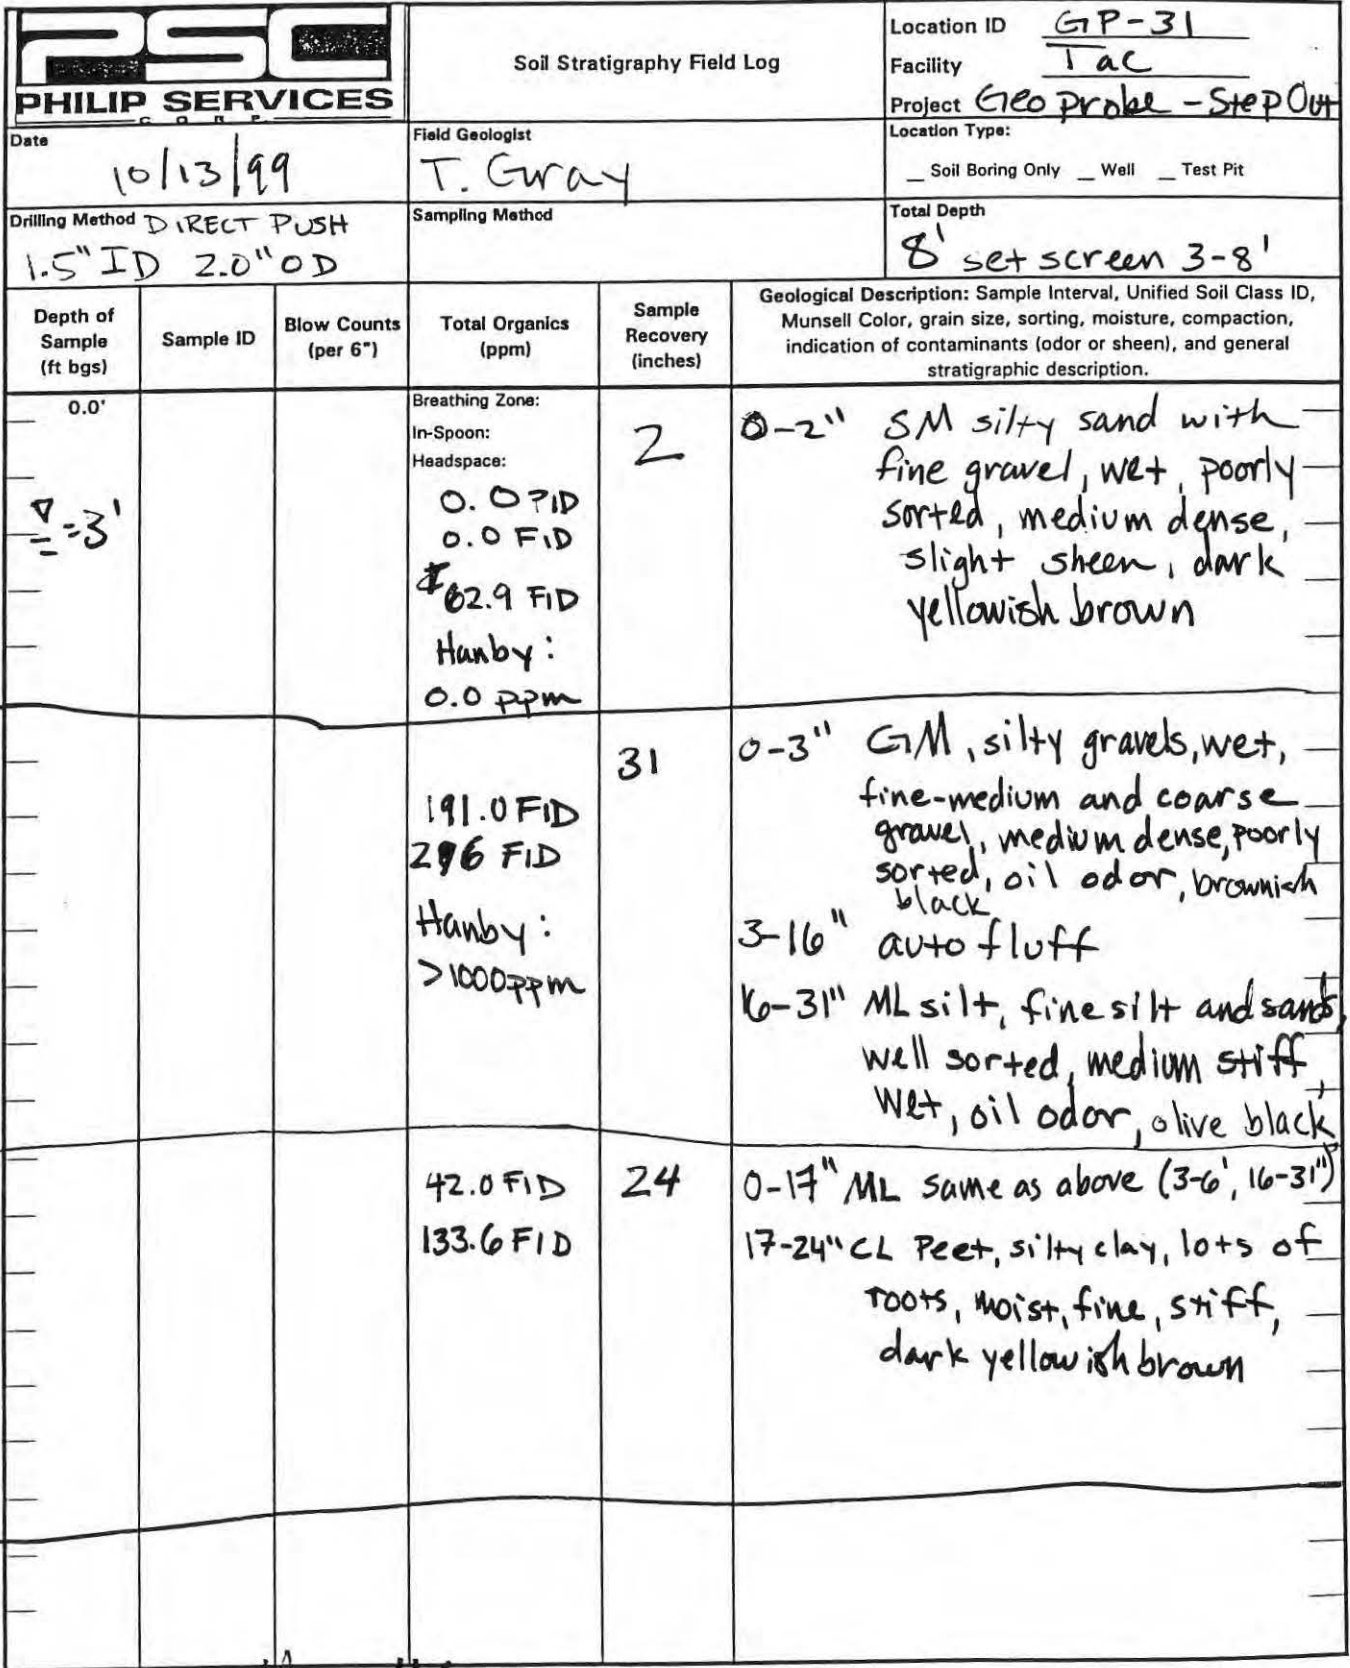 PSC
PHILIP SERVICES
CORP.
Soil Stratigraphy Field Log
Location ID GP-31
Facility Tac
Project Geo Probe - Step Out
Date
10/13/99
Field Geologist
T. Gray
Location Type:
_ Soil Boring Only _ Well _ Test Pit
Drilling Method DIRECT PUSH
1.5" ID 2.0" OD
Sampling Method
Total Depth
8' set screen 3-8'
Depth of
Sample
(ft bgs)
Sample ID
Blow Counts
(per 6")
Total Organics
(ppm)
Sample
Recovery
(inches)
Geological Description: Sample Interval, Unified Soil Class ID,
Munsell Color, grain size, sorting, moisture, compaction,
indication of contaminants (odor or sheen), and general
stratigraphic description.
0.0'
=3'
Breathing Zone:
In-Spoon:
Headspace:
0.0 PID
0.0 FID
62.9 FID
Hanby:
0.0 ppm
2
0-2" SM silty sand with
fine gravel, wet, poorly
sorted, medium dense,
slight sheen, dark
yellowish brown
191.0 FID
296 FID
Hanby:
>1000ppm
31
0-3" GM, silty gravels, wet,
fine-medium and coarse
gravel, medium dense, poorly
sorted, oil odor, brownish
black
3-16" auto fluff
16-31" ML silt, fine silt and sands,
well sorted, medium stiff,
wet, oil odor, olive black
42.0 FID
133.6 FID
24
0-17" ML same as above (3-6', 16-31")
17-24" CL Peet, silty clay, lots of
roots, moist, fine, stiff,
dark yellowish brown